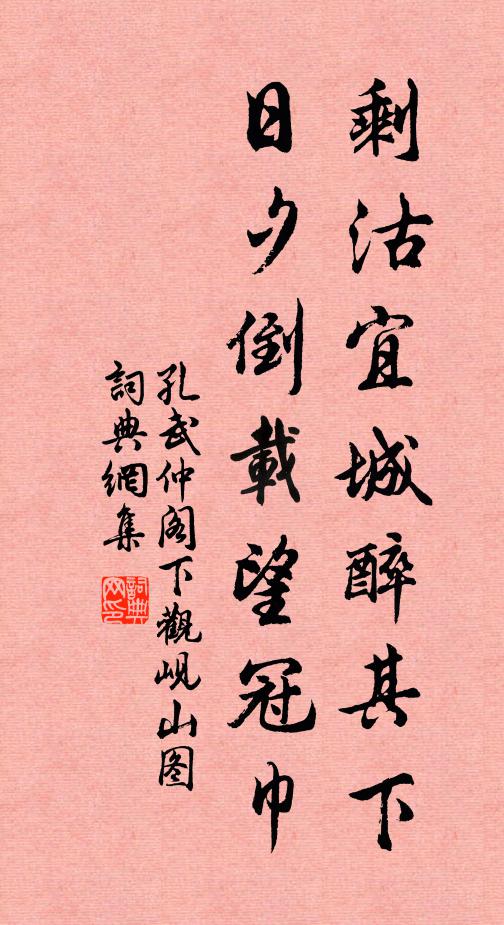 剩沽宜城醉其下
日夕倒載望冠巾
孔武仲阁下觀岘山图
詞典網集
詞典网印